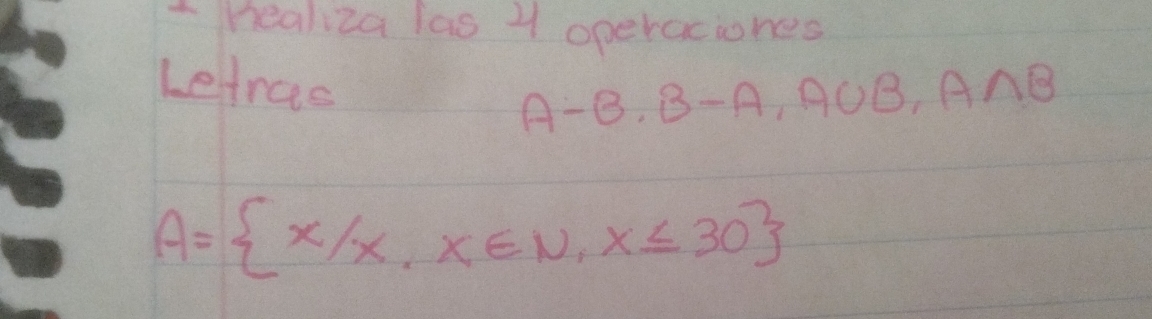 1 Realiza las 4 operaciones
Letras A-B. B-A, A∪B, A∩B
A={x/x. x∈N, x≤30}